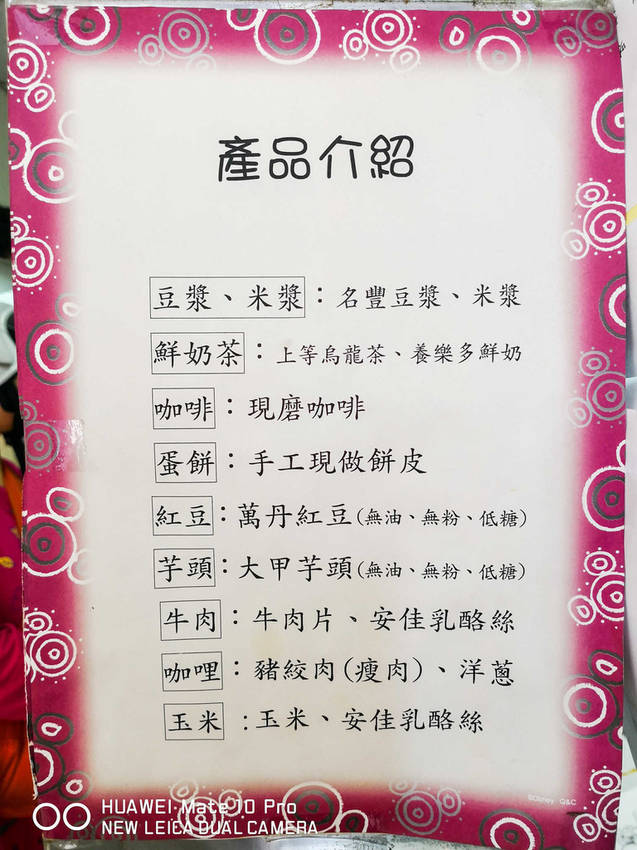 產品介紹
豆漿、米漿：名豐豆漿、米漿
鮮奶茶：上等烏龍茶、養樂多鮮奶
咖啡：現磨咖啡
蛋餅：手工現做餅皮
紅豆：萬丹紅豆(無油、無粉、低糖)
芋頭：大甲芋頭(無油、無粉、低糖)
牛肉：牛肉片、安佳乳酪絲
咖哩：豬絞肉(瘦肉)、洋蔥
玉米：玉米、安佳乳酪絲
©Disney Q&C
HUAWEI Mate 10 Pro
NEW LEICA DUAL CAMERA